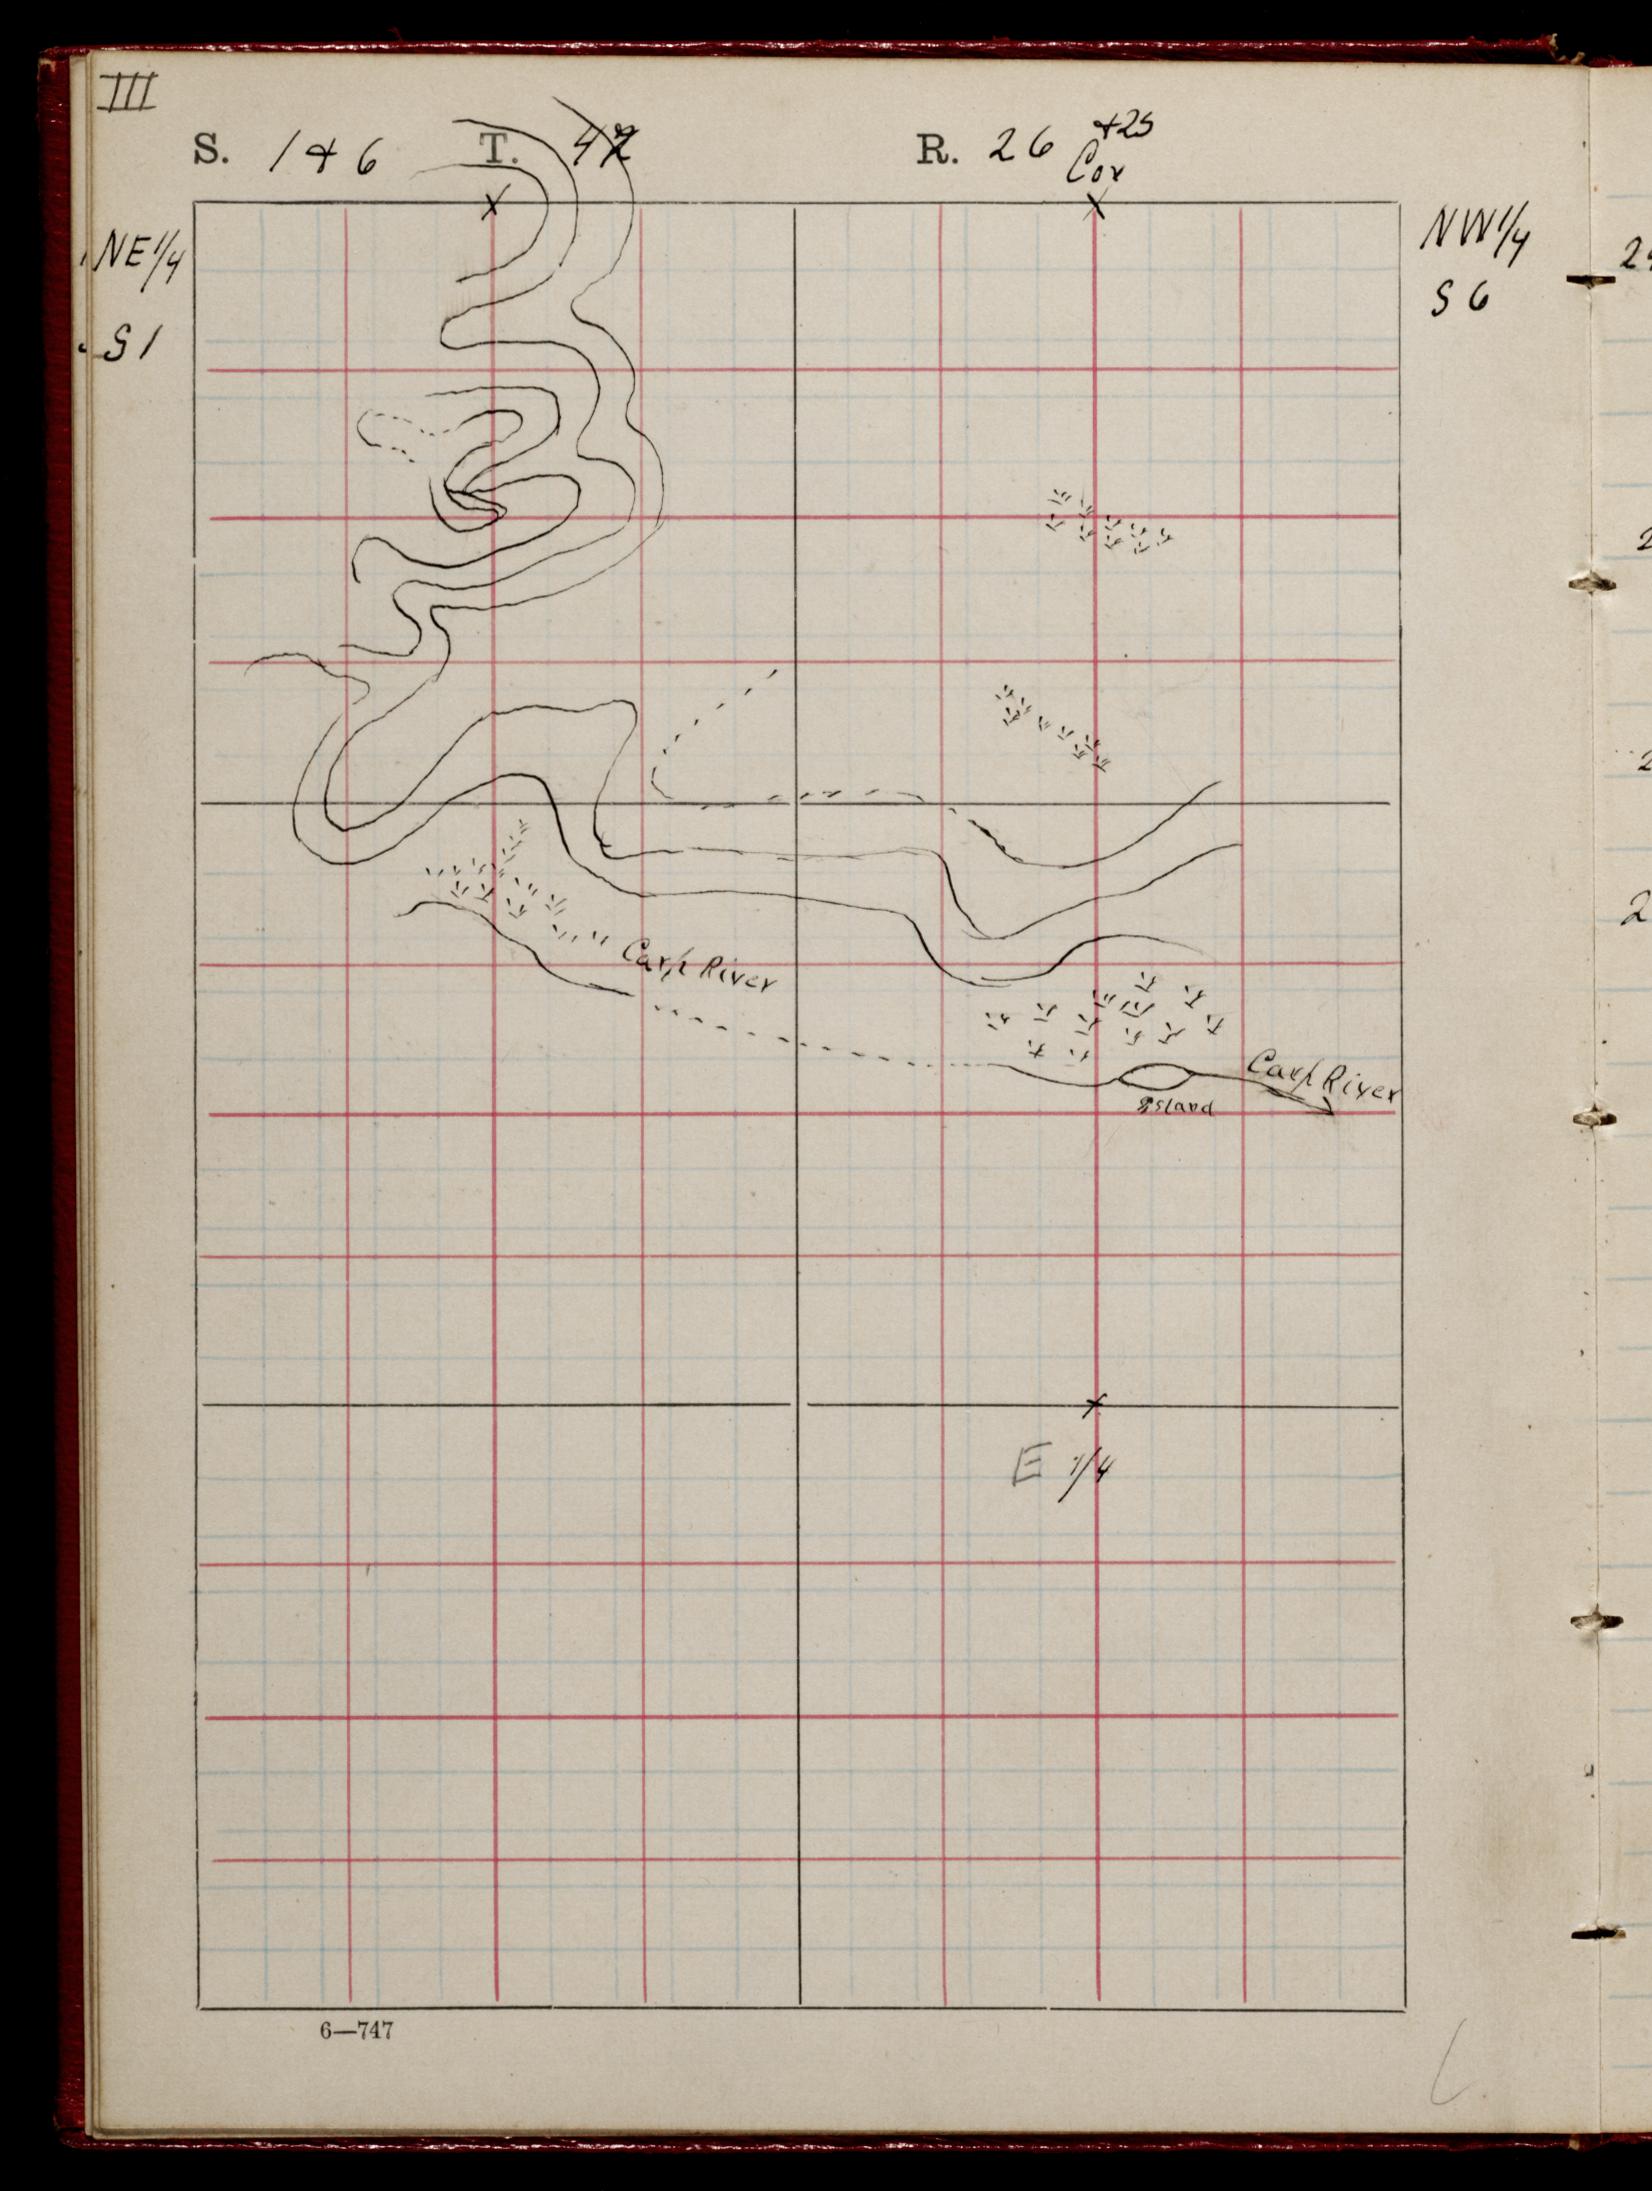 III
S. 1 & 6 T. 42 R. 26 +25
Cor
NE 1/4
S 1
NW 1/4
S 6
Carp River
Carp River
Island
E 1/4
6—747